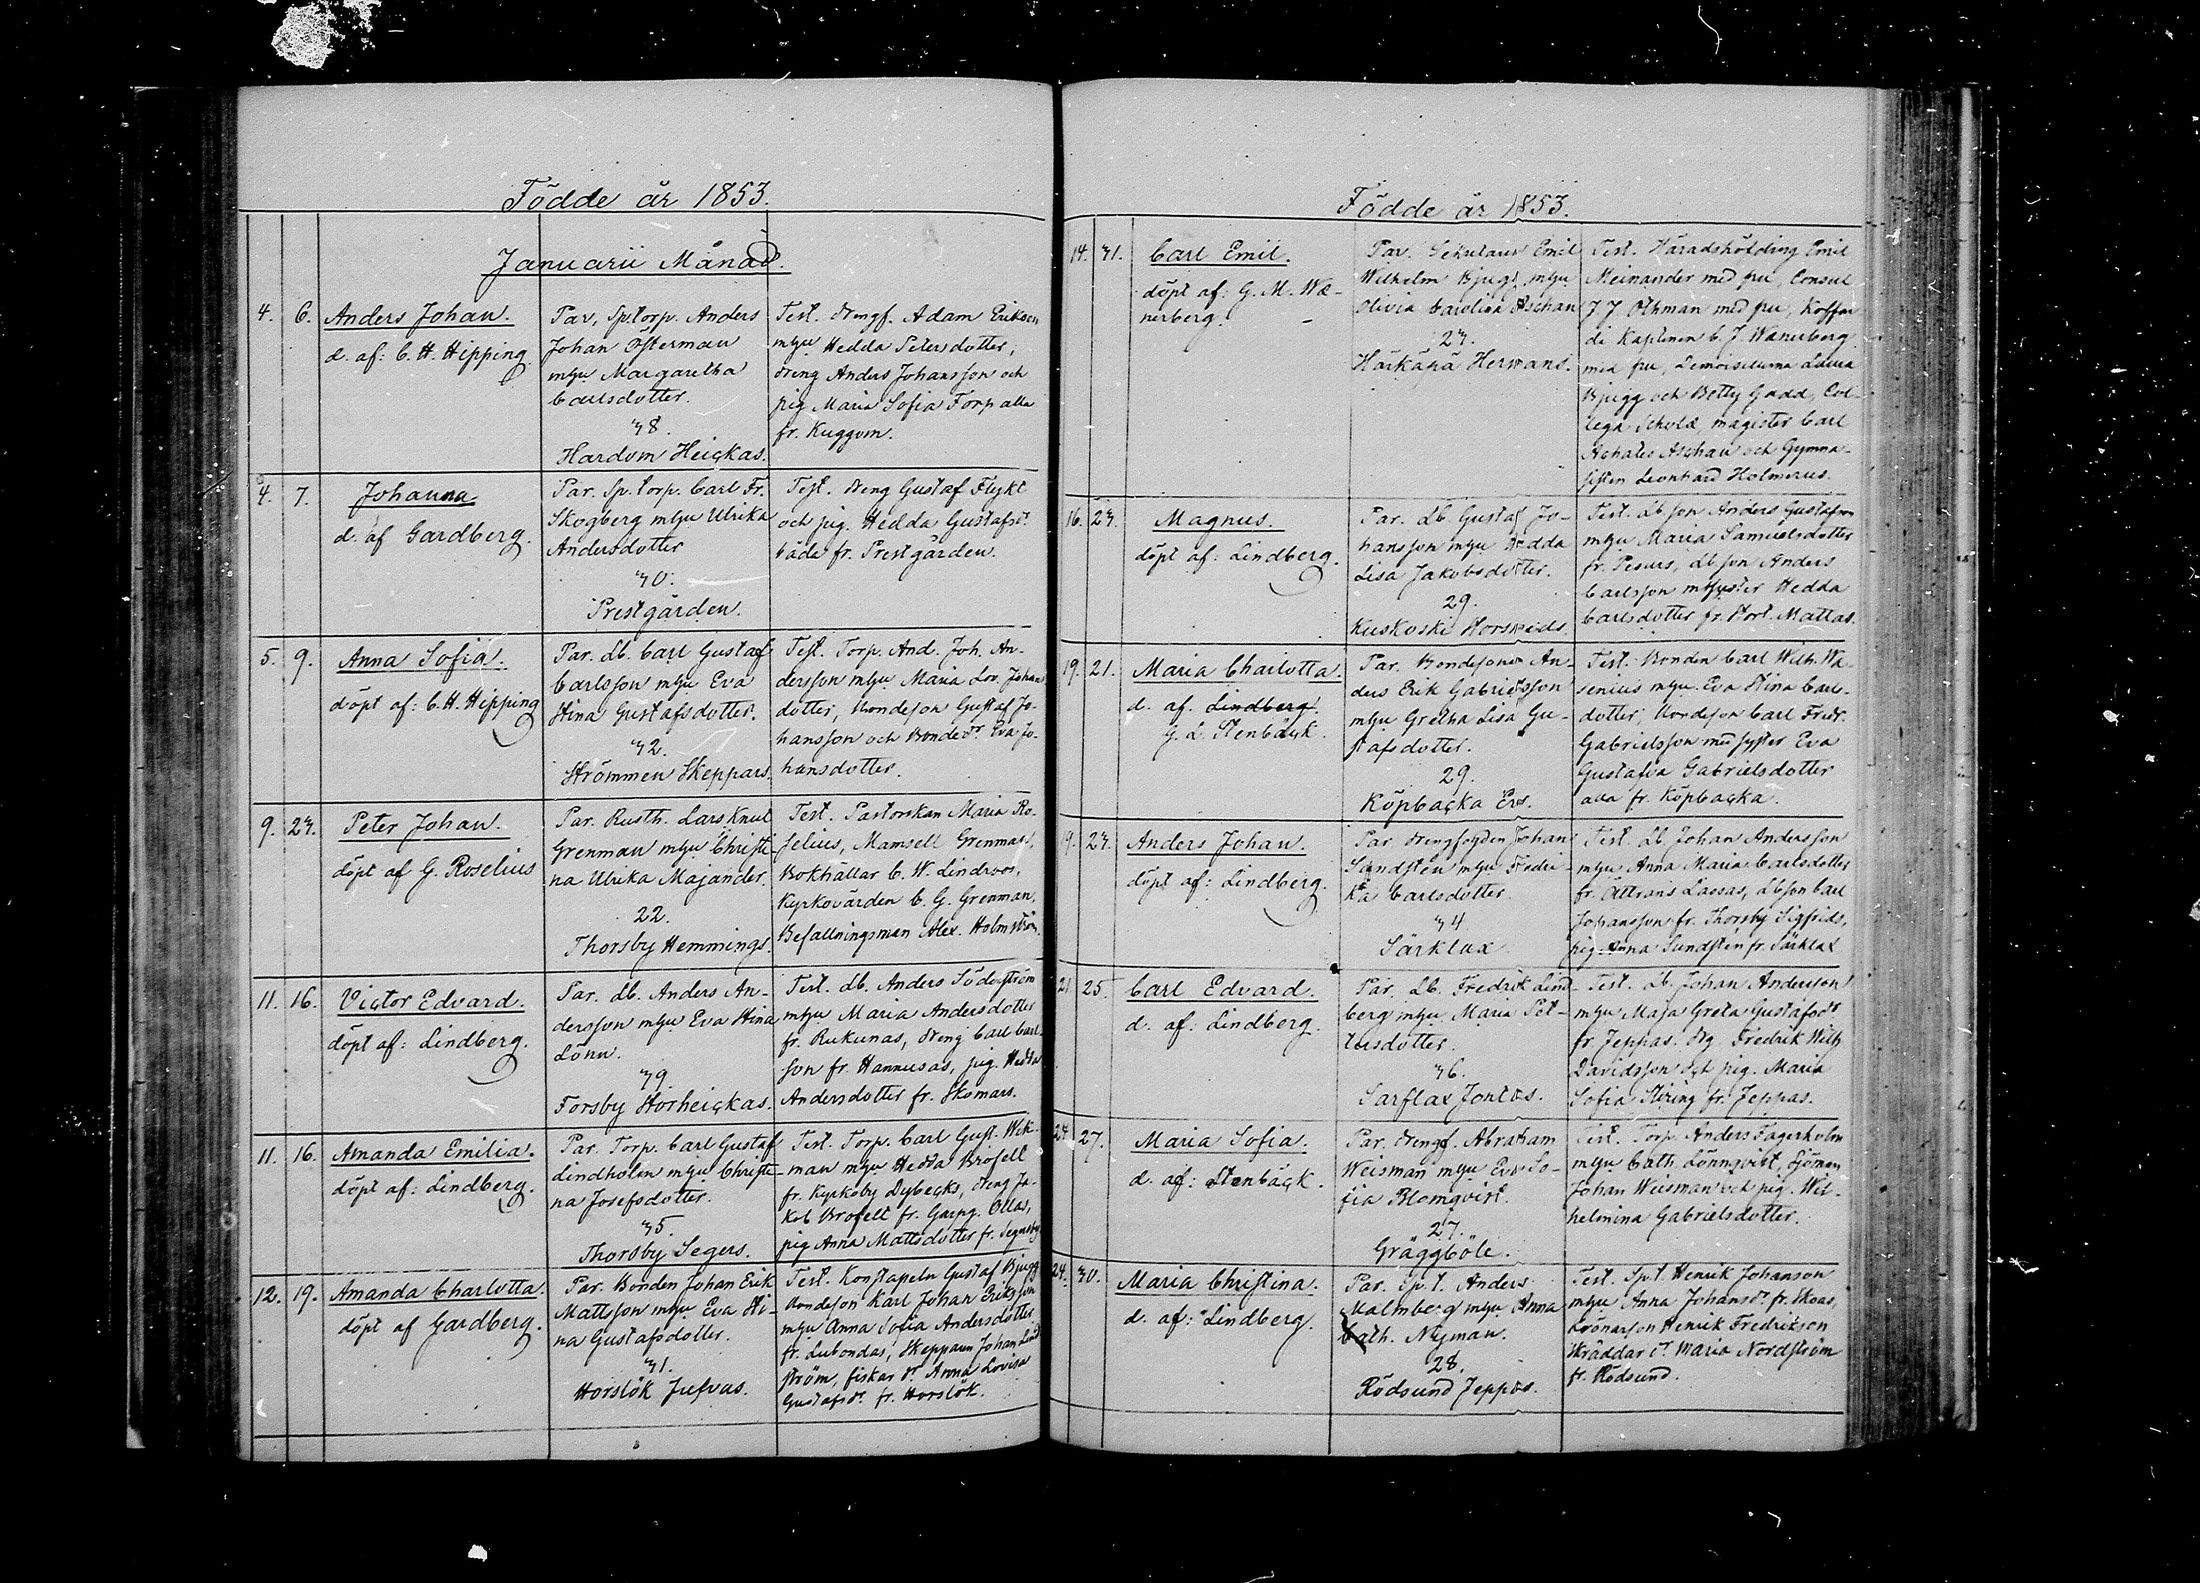 Födde år 1853.
Januarii Månad.
4. 6. Anders Johan.
d. af: C. H. Hipping
Par. Sp.torp. Anders
Johan Österman
mhu Margaretha
Carlsdotter.
38.
Hardom Heickas.
Test. drengf. Adam Erikson
mhu Hedda Petersdotter,
dreng Anders Johansson och
pig. Maria Sofia Forp alla
fr. Kuggom.
4. 7. Johanna
d. af Gardberg.
Par. Sp.torp. Carl Fr.
Skogberg mhu Ulrika
Andersdotter
30.
Prestgården.
Test. dreng Gustaf Flykt
och pig. Hedda Gustafsdr
båda fr. Prestgården.
5. 9. Anna Sofia.
döpt af: C. H. Hipping
Par. Lb. Carl Gustaf
Carlsson mhu Eva
Stina Gustafsdotter.
32.
Strömmen Skeppars.
Test. Torp. And. Joh. An-
dersson mhu Maria Lov. Johans
dotter, Bondeson Gustaf Jo-
hansson och Bondedr Eva Jo-
hansdotter.
9. 23. Peter Johan.
döpt af G. Roselius
Par. Rusth. Lars Knut
Grenman mhu Christi-
na Ulrika Majander.
22.
Thorsby Hemmings.
Test. Pastorskan Maria Ro-
selius, Mamsell Grenman,
Bokhållar C. W. Lindroos,
Kyrkovärden C. G. Grenman,
Befallningsman Alex. Holmström.
11. 16. Victor Edvard.
döpt af: Lindberg.
Par. Lb. Anders An-
dersson mhu Eva Stina
Lönn.
39.
Forsby Storheickas.
Test. Lb. Anders Söderström
mhu Maria Andersdotter
fr. Rukunas, dreng Carl Carl-
son fr. Hannusas, pig. Hedda
Andersdotter fr. Skomars.
11. 16. Amanda Emilia.
döpt af: Lindberg.
Par. Torp. Carl Gustaf
Lindholm mhu Christi-
na Josefsdotter.
35.
Thorsby Segers.
Test. Torp. Carl Gust. Wik-
man mhu Hedda Brofelt
fr. Kyrkoby Dybecks, dreng Ja-
kob Brofelt fr. Garpg. Ollas,
pig Anna Mattsdotter fr. Segersby
12. 19. Amanda Charlotta.
döpt af Gardberg.
Par. Bonden Johan Erik
Mattsson mhu Eva Sti-
na Gustafsdotter.
31.
Horslök Jufvas.
Test. Konstapeln Gustaf Bjugg
Bondeson Karl Johan Eriksson
mhu Anna Sofia Andersdotter
fr. Lubondas, Skepparen Johan Lind
ström, fiskar dr Anna Lovisa
Gustafsdr. fr. Horslök.
Födde år 1853.
14. 31. Carl Emil.
döpt af: G. M. Wæ-
nerberg.
Par. Sekretare Emil
Wilhelm Bjugg mhu
Olivia Carolina Aschan
23.
Härkäpä Hermans.
Test. Häradshöfding Emil
Meinander med fru, Consul
J J Othman med fru, Koffar
di Kaptenen C. J. Wænerberg
med fru, Demoisellerna Laura
Bjugg och Betty Gadd, Col-
lega Scholæ, magister Carl
Achates Aschan och Gymna-
sisten Leonhard Holmerus.
16. 23. Magnus.
döpt af: Lindberg.
Par. Lb Gustaf Jo-
hansson mhu Hedda
Lisa Jakobsdotter.
29.
Kuskoski Horsnids.
Test. Lb son Anders Gustafsson
mhu Maria Samuelsdotter
fr. Pesurs, Lb son Anders
Carlsson m syster Hedda
Carlsdotter fr. Stort. Mattas.
19. 21. Maria Charlotta.
d. af. Lindberg.
G. L. Stenbäck.
Par. Bondesonen An-
ders Erik Gabrielsson
mhu Gretha Lisa Gu-
stafsdotter.
29.
Köpbacka Ers.
Test. Bonden Carl Wilh. Wa-
senius mhu Eva Stina Carls-
dotter, Bondeson Carl Fredr.
Gabrielsson med syster Eva
Gustafva Gabrielsdotter
alla fr. Köpbacka.
19. 23. Anders Johan.
döpt af: Lindberg.
Par. drengfogden Johan
Sandsten mhu Fredri-
ka Carlsdotter
34
Särklax
Test. Lb. Johan Andersson
mhu Anna Maria Carlsdotter
fr. Attrans Lassas, Lb son Carl
Johansson fr. Thorsby Sigfrids,
pig. Anna Sundsten fr. Särklax
21 25. Carl Edvard.
d. af: Lindberg.
Par. Lb. Fredrik Lind
berg mhu Maria Pet-
tersdotter.
36.
Sarflax Jontas.
Test. Lb. Johan Andersson
mhu Maja Greta Gustafsdr
fr. Jeppas. drg Fredrik Wilh
Davidsson och pig. Maria
Sofia Stiring fr. Jeppas.
23. 27. Maria Sofia.
d. af: Stenbäck.
Par. drengf. Abraham
Weisman mhu Eva So-
fia Blomqvist.
27.
Gräggböle.
Test. Torp. Anders Fagerholm
mhu Cath. Lönnqvist, Sjöman
Johan Weisman och pig. Wil-
helmina Gabrielsdotter.
24. 30. Maria Christina.
d. af: Lindberg
Par. Sp.t. Anders
Malmberg mhu Anna
Cath. Nyman.
28.
Rödsund Jeppas.
Test. Sp.t. Henrik Johanson
mhu Anna Johansdr fr. Skoas,
Lrönarson Henrik Fredrikson
Skräddar dr Maria Nordström
fr. Rödsund.